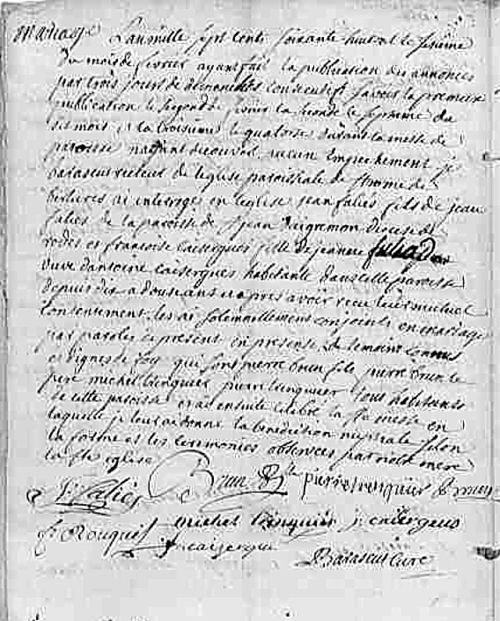 mariage L'an mille sept cents soixante huit et le
du mois de fevrier ayant fait la publication des annonces
par trois jours de dimanches consecutifs savoir la premiere
publication le second la seconde le septieme du
mois et la troisieme le quatorse durant la messe de
paroisse n'ayant decouvert aucun empechement je
barascut recteur de l'eglise paroissiale de st home de
ai interrogé en l'eglise jean falies fils de jean
falies de la paroisse de st jean d'aigremon diocese de
rodes et francoise caisergues fille de jeanne
veuve d'antoine caisergues habitante dans cette paroisse
depuis dix a douse ans et apres avoir receu leur mutuel
consentement, les ai solemnellement conjoints en mariage
par paroles de present en presence de temoins connus
et dignes de foy qui sont pierre brun fils pierre brun
pere michel pierre tous habitants
de cette paroisse et ai ensuite celebré la ste messe en
laquelle je leur ai donné la benediction nuptiale selon
la forme et les ceremonies observées par notre mere
la ste eglise
J. falies Brun pierre Brun
Rouquet michel j. caisergues
f. caizergue
Barascut curé